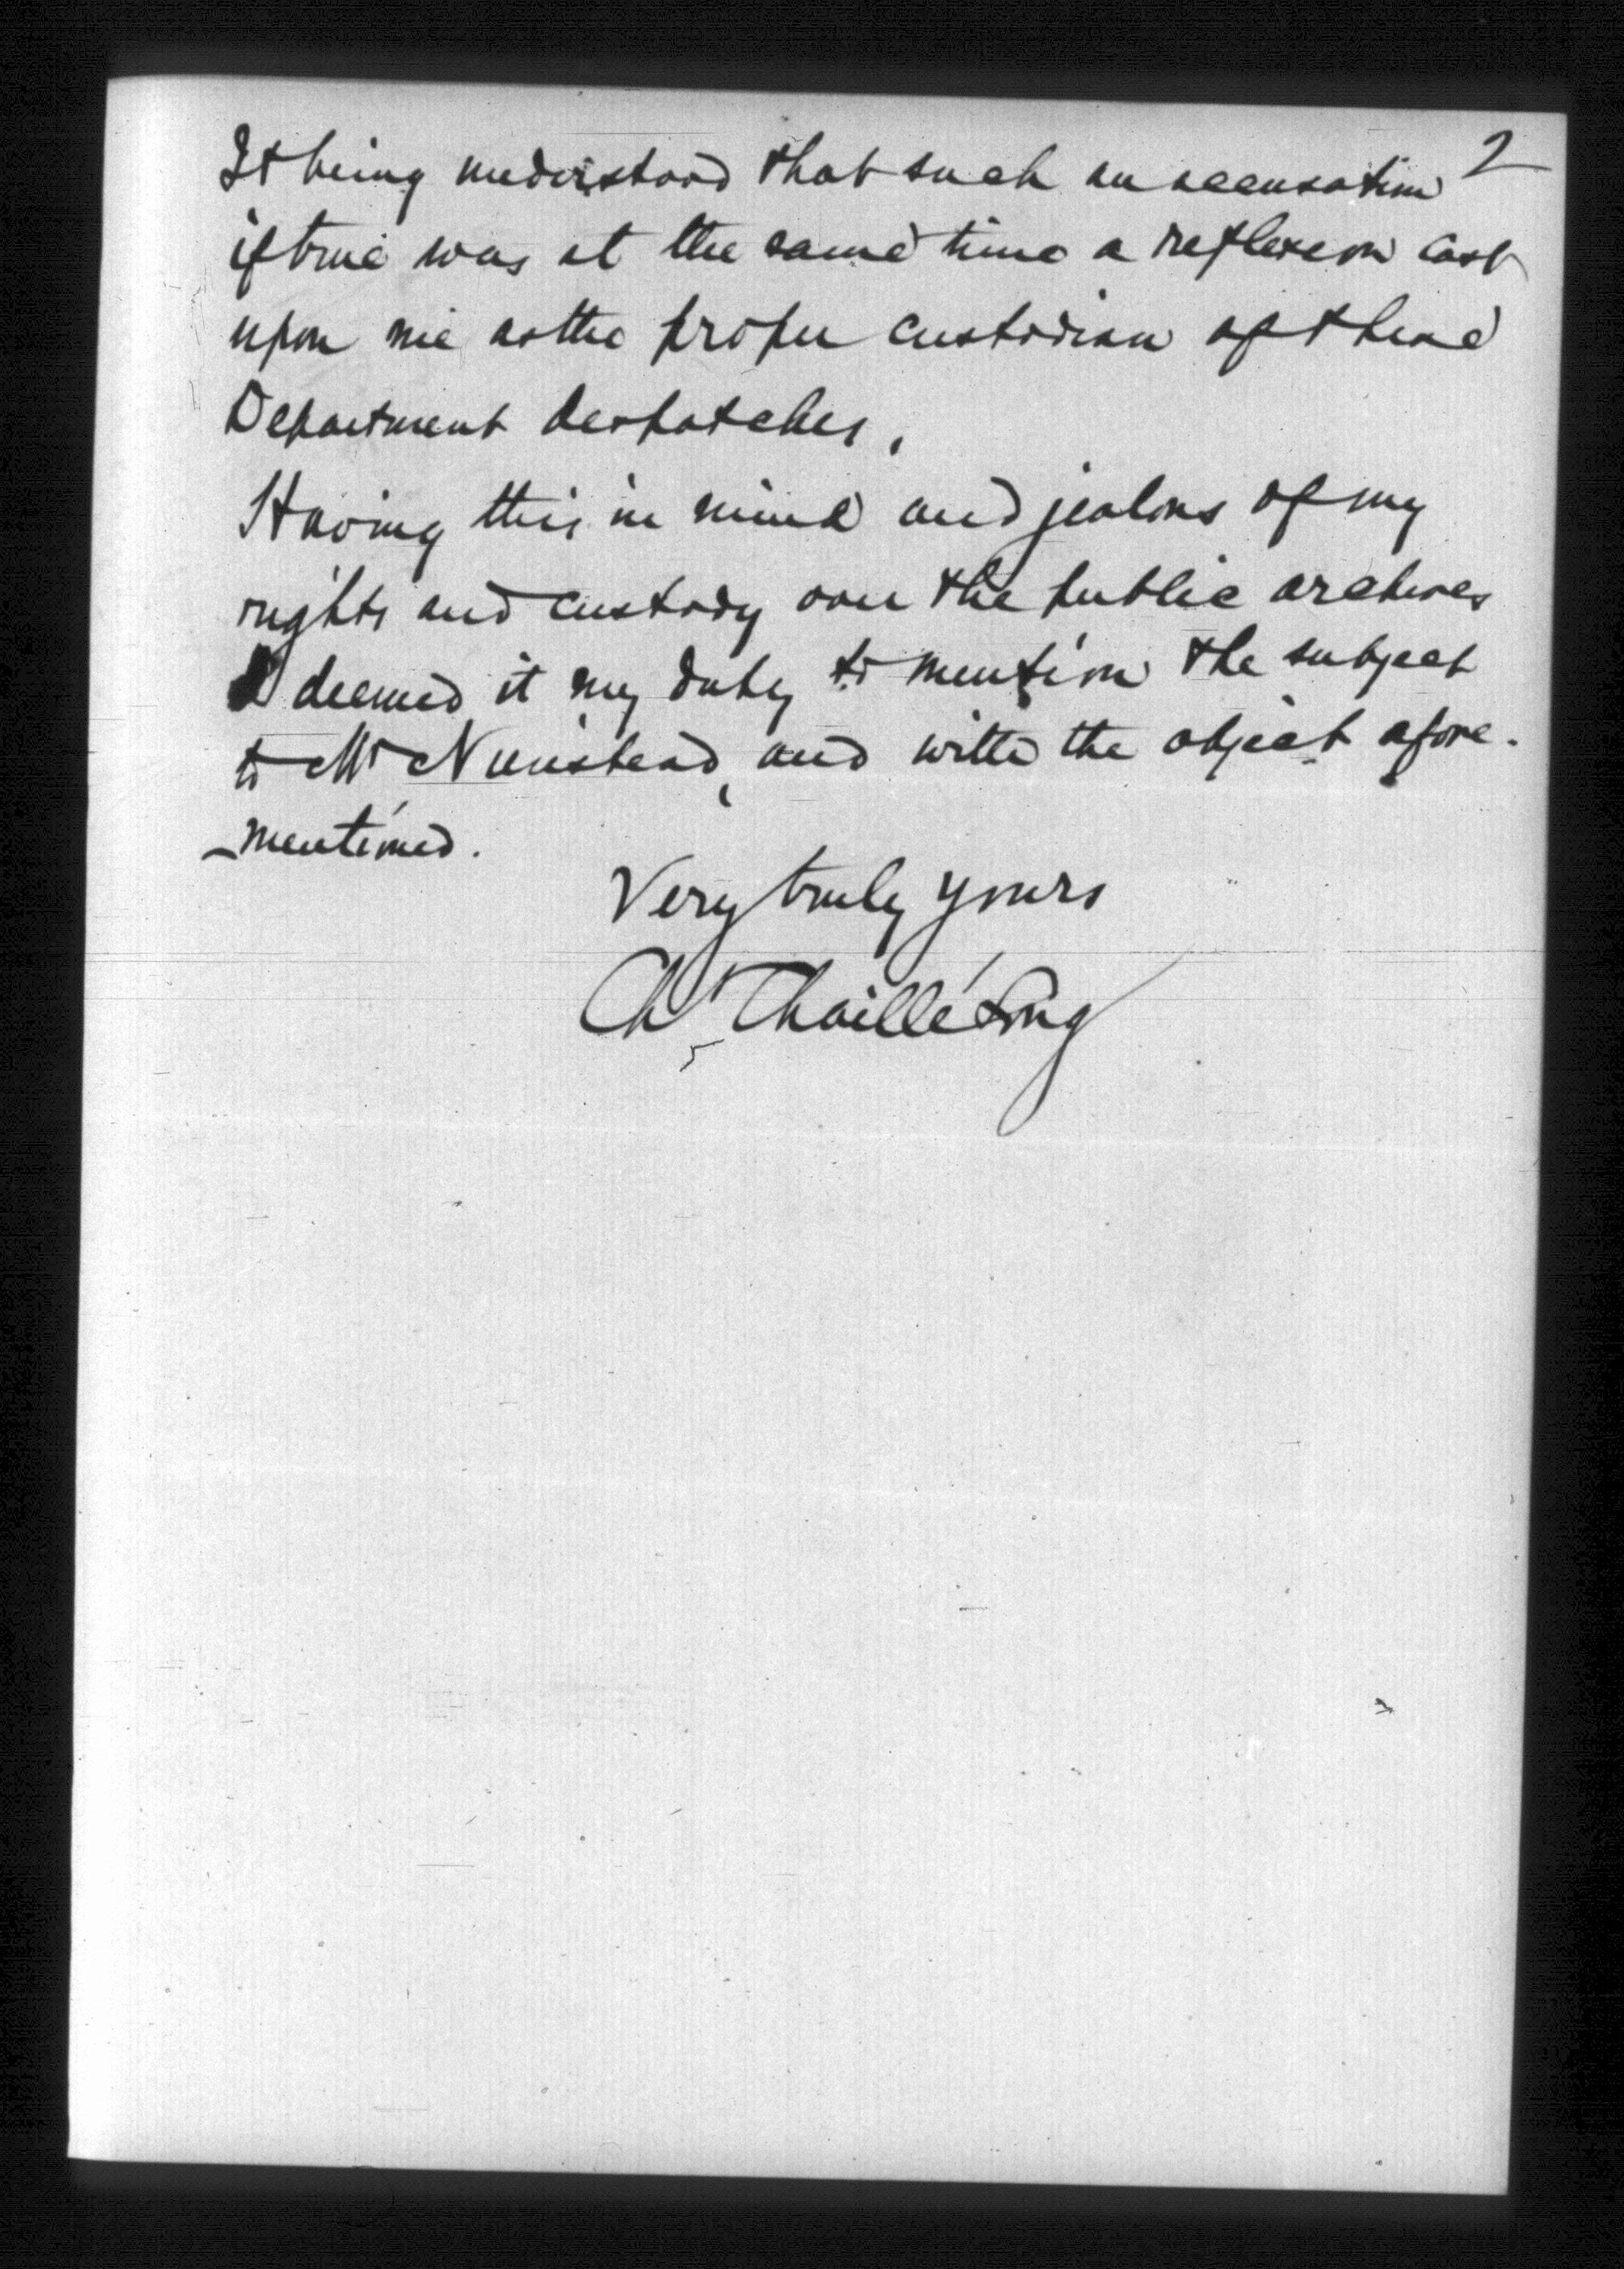 2
It being understood that such an accusation
if true was at the same time a reflexion cast
upon me as the proper custodian of these
Department despatches,
Having this in mind and jealous of my
rights and custody over the public archives
I deemed it my duty to mention the subject
to Mr Nienstead, and with the object afore-
-mentioned.
Very truly yours
Ch Chaillé Long